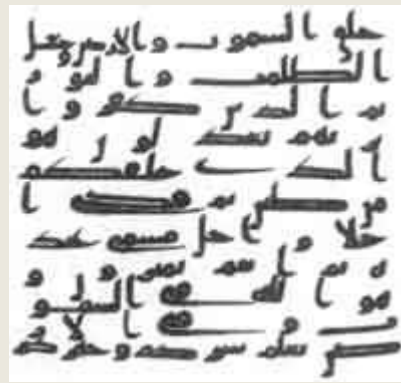 خلق السموت والارض وجعل
الظلمت والنور ث
م الذين كفروا
بربهم يعدلون هو
الذي خلقكم
من طين ثم قضى ا
جلا واجل مسمى عند
ه ثم انتم تمترون و
هو الله في السمو
ت وفي الا
رض يعلم سركم وجهركم